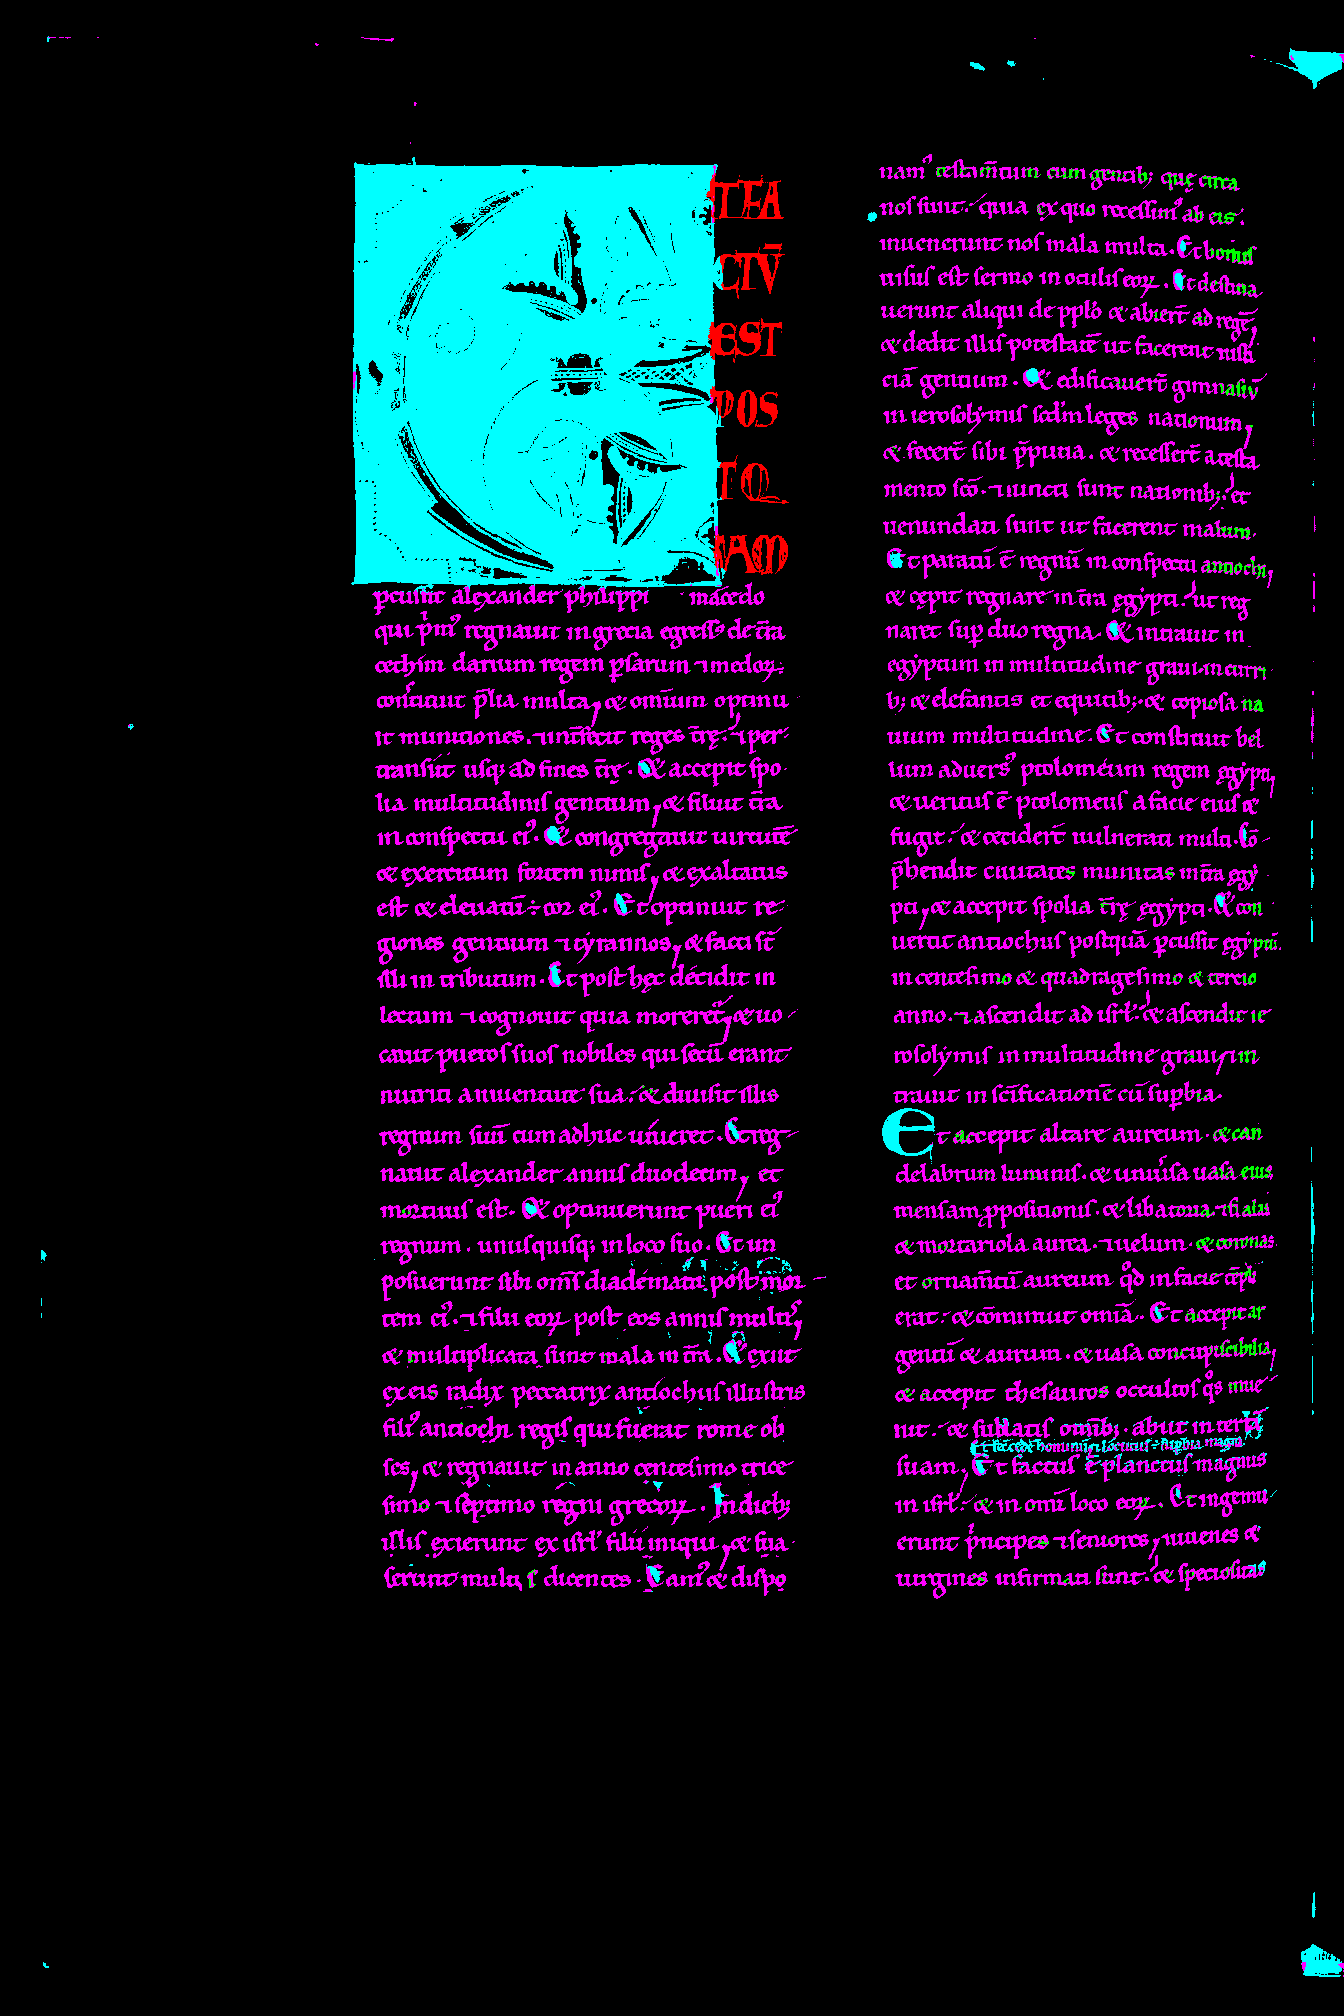 ET FA
CTṼ
EST
POS
TQ
VAM
p̱cussit alexander philippi macedo
qui p̃mꝰ regnauit in grecia egressꝰ de t̃ra
cethim darium regem p̱sarum ⁊ medoꝝ:
constituit p̃lia multa, & omnium optinu
it munitiones. ⁊ int̃fecit reges t̃rę. ⁊ per
transiit usq; ad fines t̃rę. Et accepit spo
lia multitudinis gentium, & siluit t̃ra
in conspectu eiꝰ. Et congregauit uirtutē
& exercitum fortem nimis, & exaltatus
est & eleuatū ÷ cor eiꝰ. Et optinuit re
giones gentium ⁊ tyrannos, & facti st̄
illi in tributum. Et post hęc decidit in
lectum ⁊ cognouit quia moreret̃, & uo
cauit pueros suos nobiles qui secū erant
nutriti a iuuentute sua. & diuisit illis
regnum suū cum adhuc uiueret. Et reg
nauit alexander annis duodecim, et
mortuus est. Et optinuerunt pueri eiꝰ
regnum. unusquisq; in loco suo. Et im
posuerunt sibi om̄s diademata post mor
tem eiꝰ. ⁊ filii eoꝝ post eos annis multꝰ,
& multiplicata sunt mala in t̃ra. Et exiit
ex eis radix peccatrix antiochus illustris
filiꝰ antiochi regis qui fuerat rome ob
ses, & regnauit in anno centesimo trice
simo ⁊ septimo regni grecoꝝ. In dieb;
illis exierunt ex isrł filii iniqui, & sua
serunt multis dicentes. Eamꝰ & dispo
namꝰ testam̄tum cum gentib; quę circa
nos sunt. quia ex quo recessimꝰ ab eis.
inuenerunt nos mala multa. Et bonus
uisus est sermo in oculis eoꝝ. Et destina
uerunt aliqui de pplo & abiert̄ ad regē,
& dedit illis potestatē ut facerent iusti
ciā gentium. Et edificauert̄ gimnasiū
in ierosolymis scdm leges nationum,
& fecert̄ sibi p̃putia. & recessert̄ a testa
mento sc̄o. ⁊ iuncti sunt nationib; et
uenundati sunt ut facerent malum.
Et paratū ē regnū in conspectu antiochi,
& cępit regnare in t̃ra ęgypti. ut reg
naret sup̱ duo regna. Et intrauit in
egyptum in multitudine graui. in curri
b; & elefantis et equitib; & copiosa na
uium multitudine. Et constituit bel
lum aduersꝰ ptolomeum regem ęgypti,
& ueritus ē ptolomeus a facie eius &
fugit. & ceciderт̄ uulnerati multi. Co̅
p̃hendit ciuitates munitas in t̃ra ęgy
pti, & accepit spolia t̃rę ęgypti. Et con
uertit antiochus postquā p̱cussit ęgyptū.
in centesimo & quadragesimo & tercio
anno. ⁊ ascendit ad isrł. & ascendit ie
rosolymis in multitudine graui, ⁊ in
trauit in sc̄ificationē cū sup̱bia.
Et accepit altare aureum. & can
delabrum luminis. & uniu̾sa uasa eius
mensam p̱positionis. & libatoria. ⁊ fialas
& mortariola aurea. ⁊ uelum. & coronas.
et ornam̄tū aureum qd̾ in facie tēpli
erat. & cōminuit omīa. Et accepit ar
gentū & aurum. & uasa concupiscibilia,
& accepit thesauros occultos qͦs inue
nit. & sublatis omīb; abiit in terrā
Et fec̄ cędē hominum, ⁊ locutus ÷ sup̱bia magna
suam, Et factus ē planctus magnus
in isrł. & in omi loco eoꝝ. Et ingemu
erunt p̃ncipes ⁊ seniores, iuuenes &
uirgines infirmati sunt. & speciositas